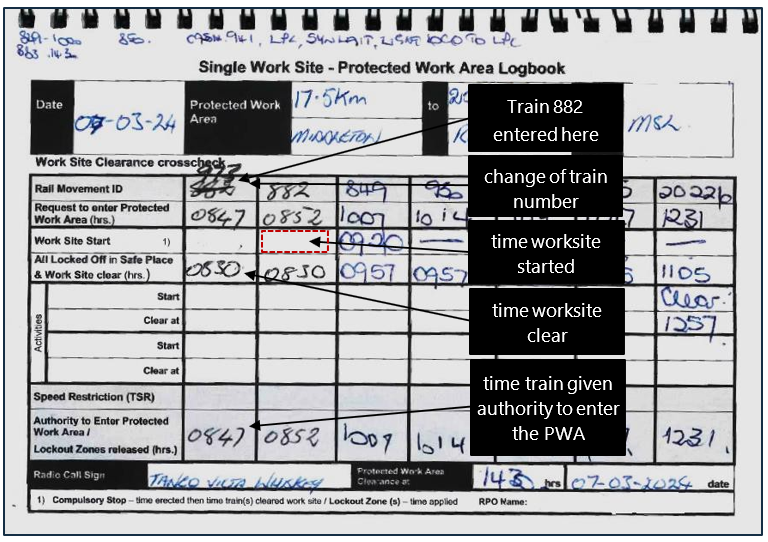 849-1000 850. LPC, LIGHT LOCO TO LPC
883 .143
Single Work Site - Protected Work Area Logbook
Date 07-03-24 Protected Work Area 17.5Km to MSL
MIDDLETON
Train 882 entered here
Work Site Clearance crosscheck
Rail Movement ID 882 849 20226
change of train number
Request to enter Protected Work Area (hrs.) 0847 0852 1007 1014 1231
Work Site Start 1) 0920 — —
time worksite started
All Locked Off in Safe Place & Work Site clear (hrs.) 0830 0830 0957 0957 1105
Activities
Start Clear.
time worksite clear
Clear at 1257
Start
Clear at
Speed Restriction (TSR)
time train given authority to enter the PWA
Authority to Enter Protected Work Area / Lockout Zones released (hrs.) 0847 0852 1007 1014 1231
Radio Call Sign TANGO VICTA WHISKEY Protected Work Area Clearance at 143 hrs 07-03-2024 date
1) Compulsory Stop – time erected then time train(s) cleared work site / Lockout Zone (s) – time applied RPO Name: